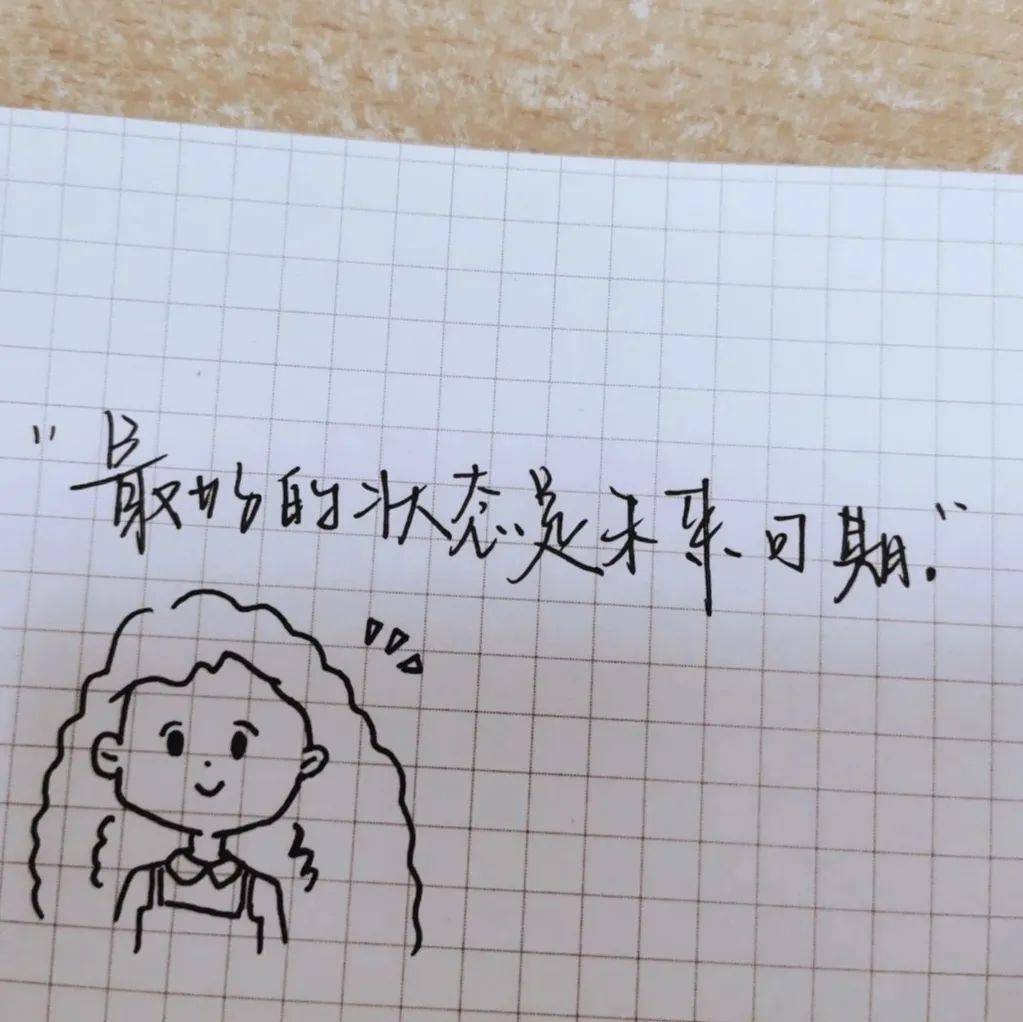 "最好的状态是未来可期."